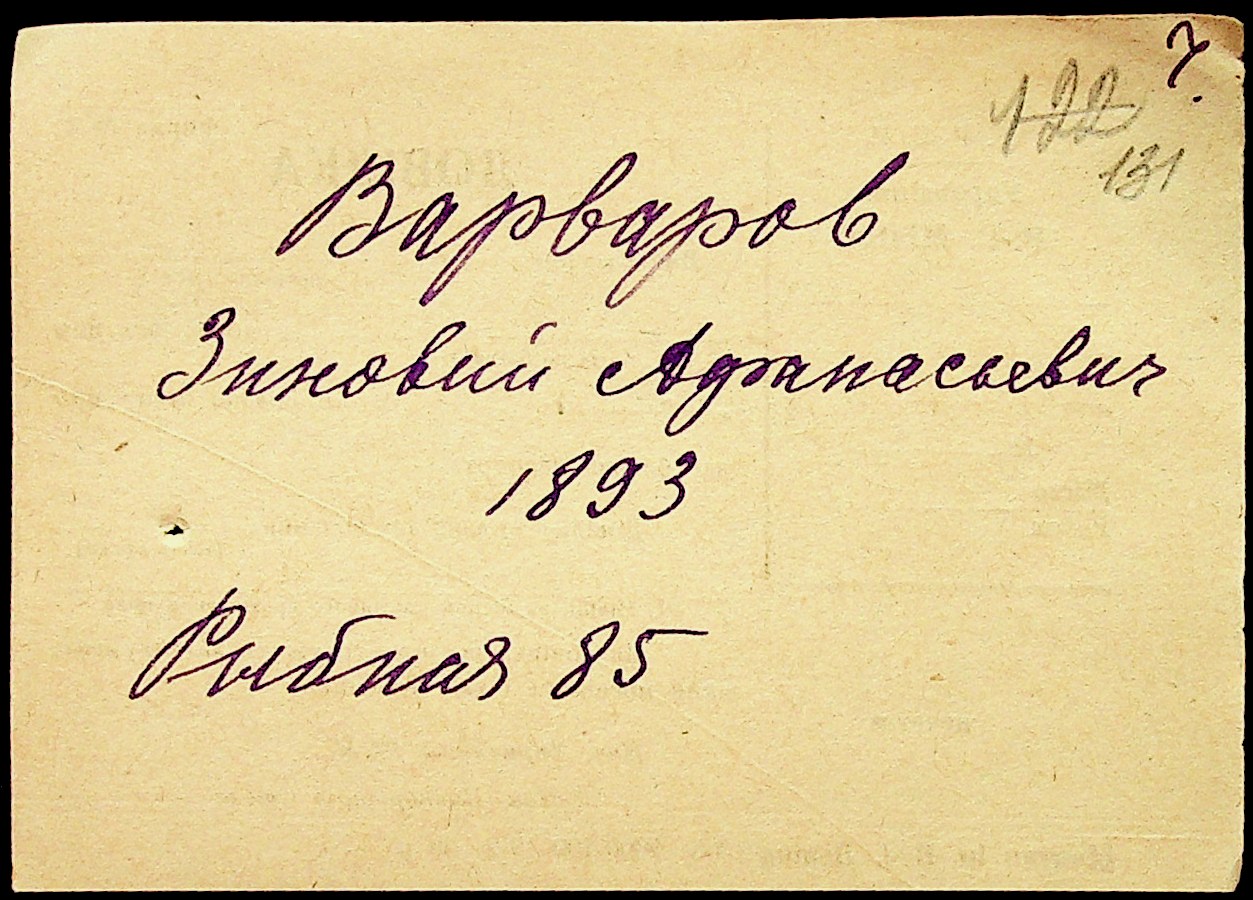 7.
122
131
Варваров
Зиновий Афанасьевич
1893
Рыбная 85